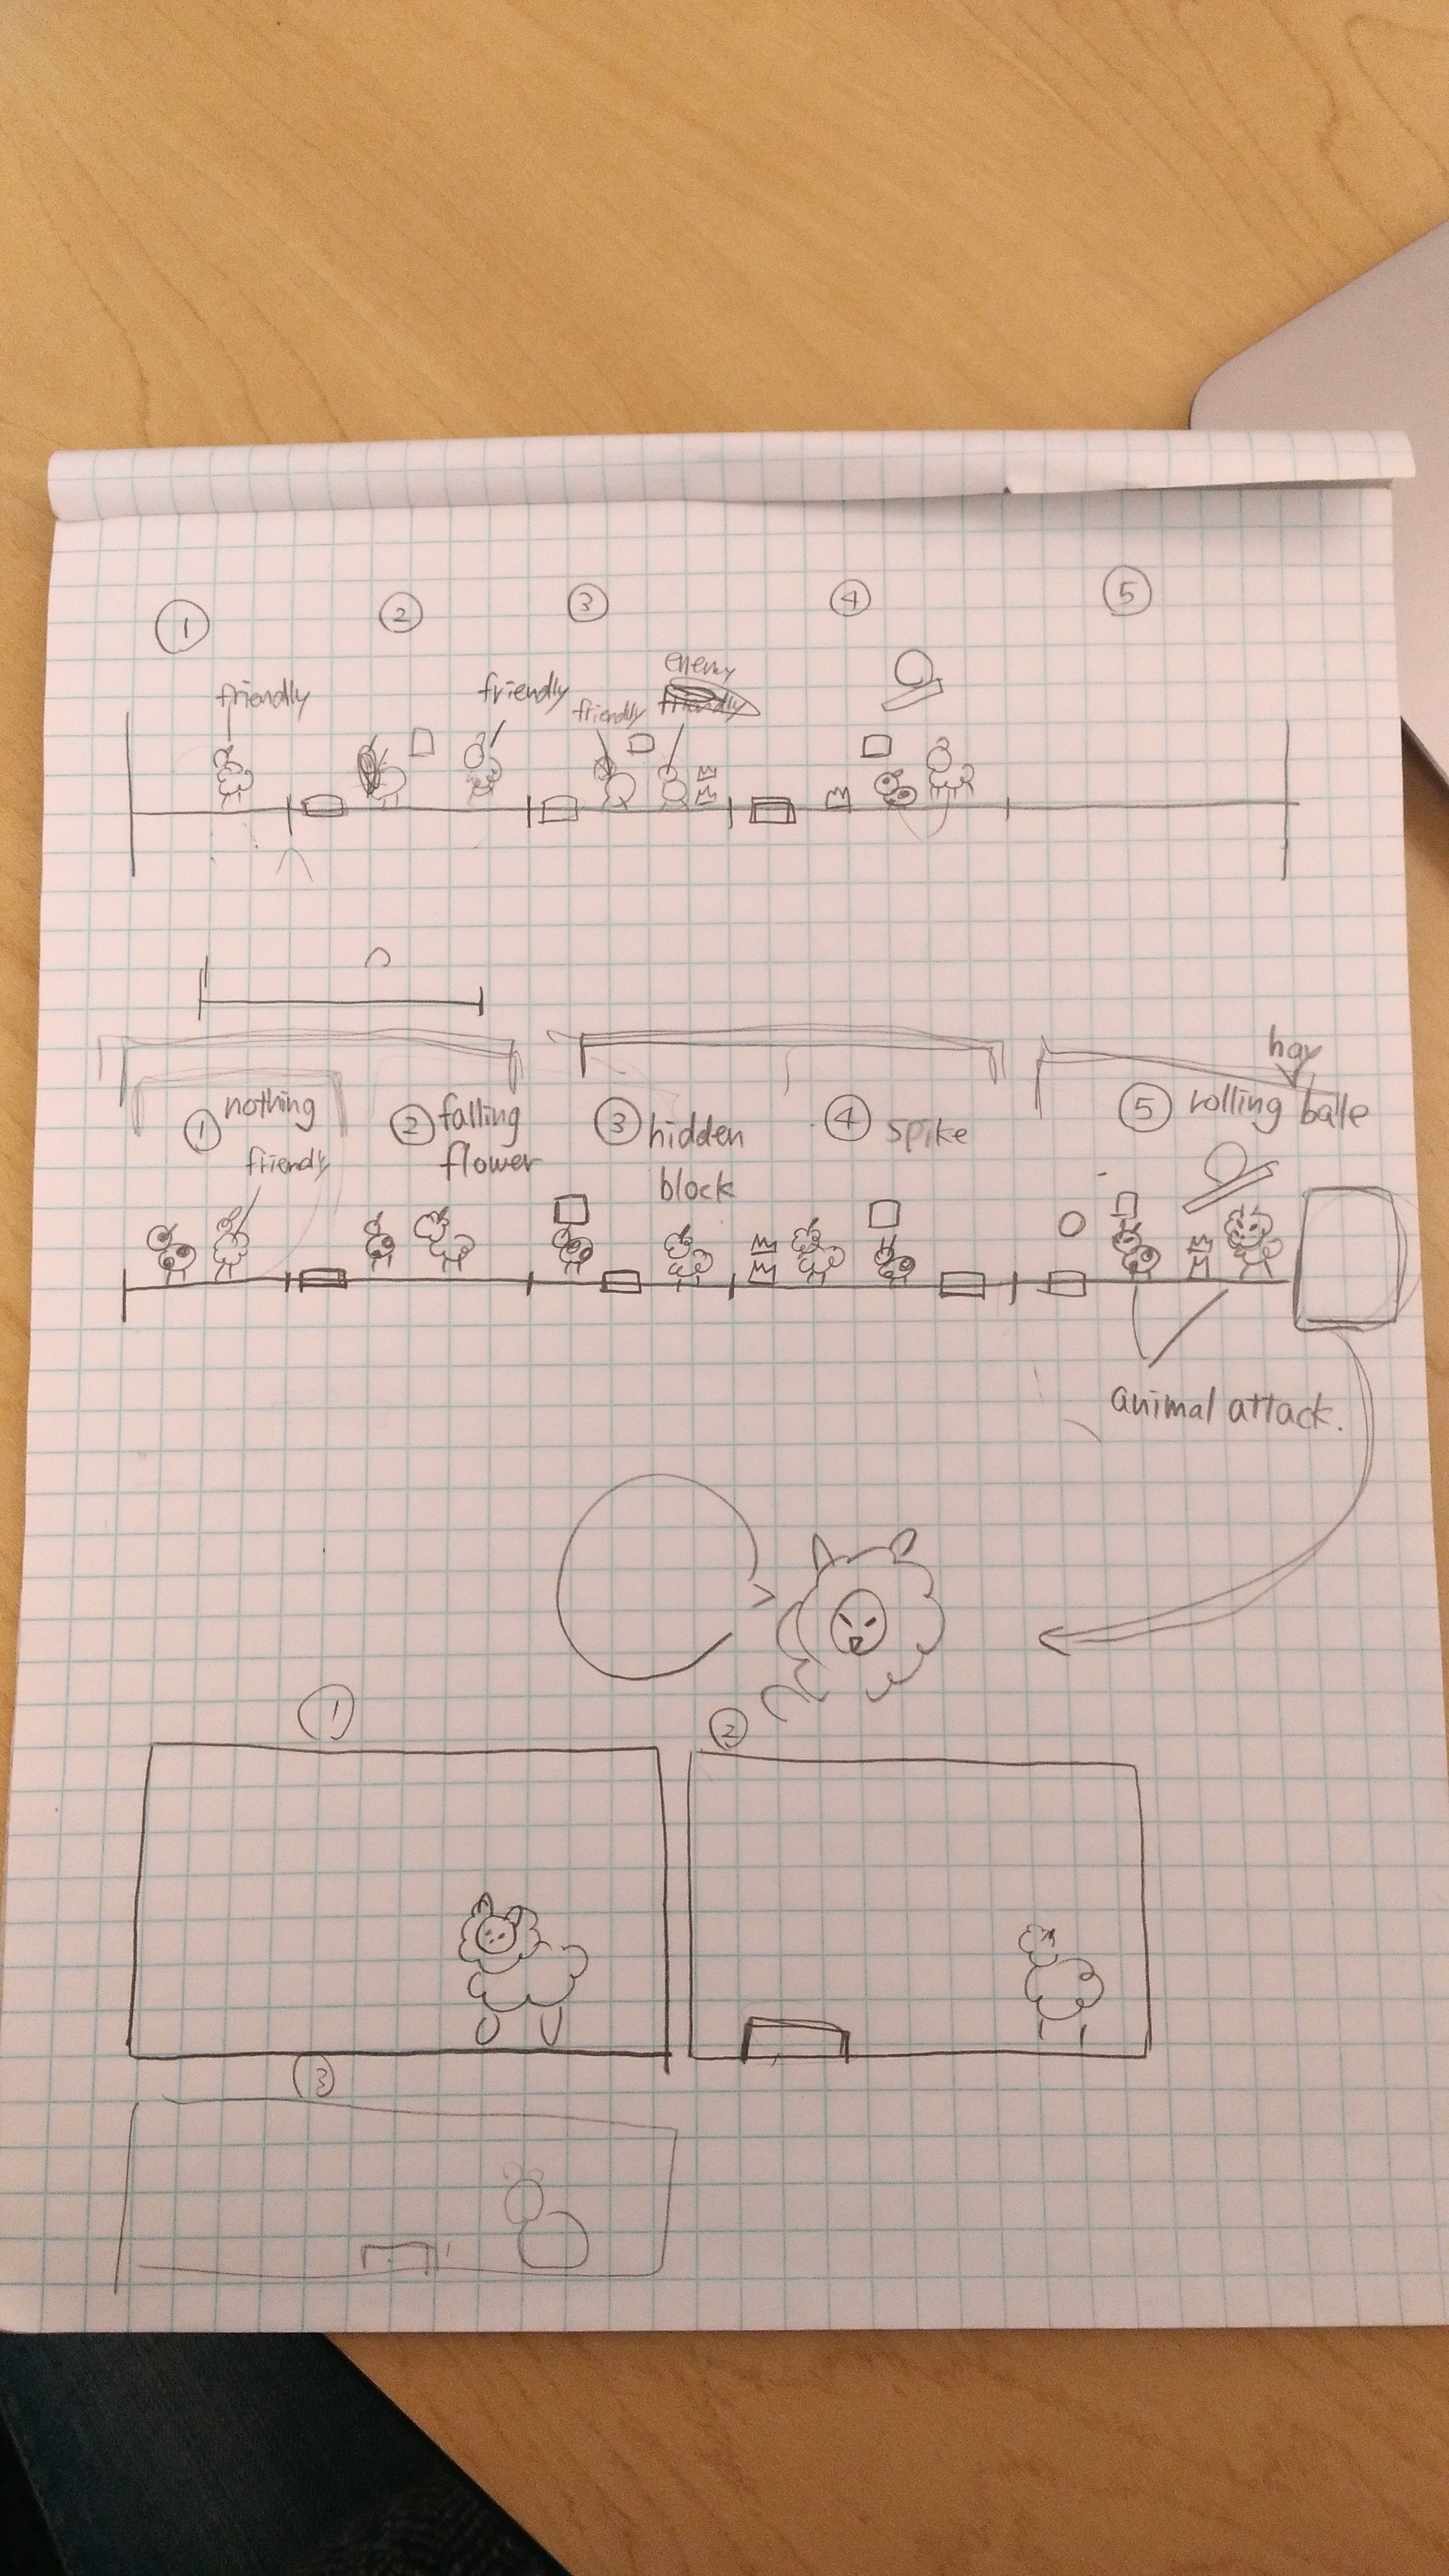 1
2
3
4
5
friendly
friendly
friendly
enemy
friendly
1 nothing
friendly
2 falling
flower
3 hidden
block
4 spike
hay
5 rolling balle
animal attack.
1
2
3